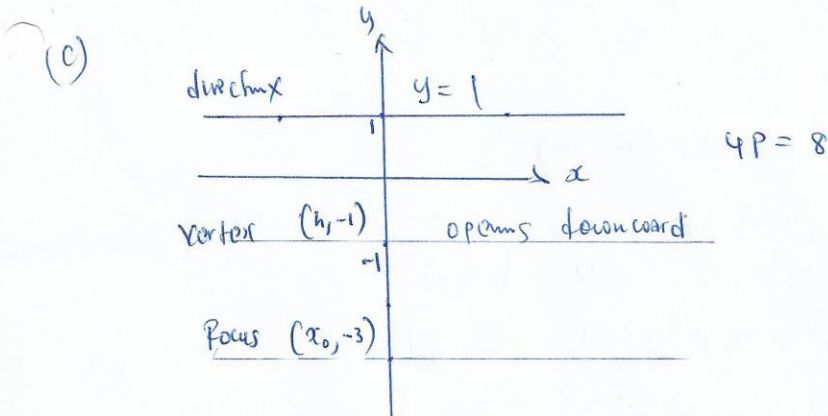 y
(c)
directrix y = 1
1
4P = 8
x
vertex (h, -1) opens downward
-1
Focus (x₀, -3)